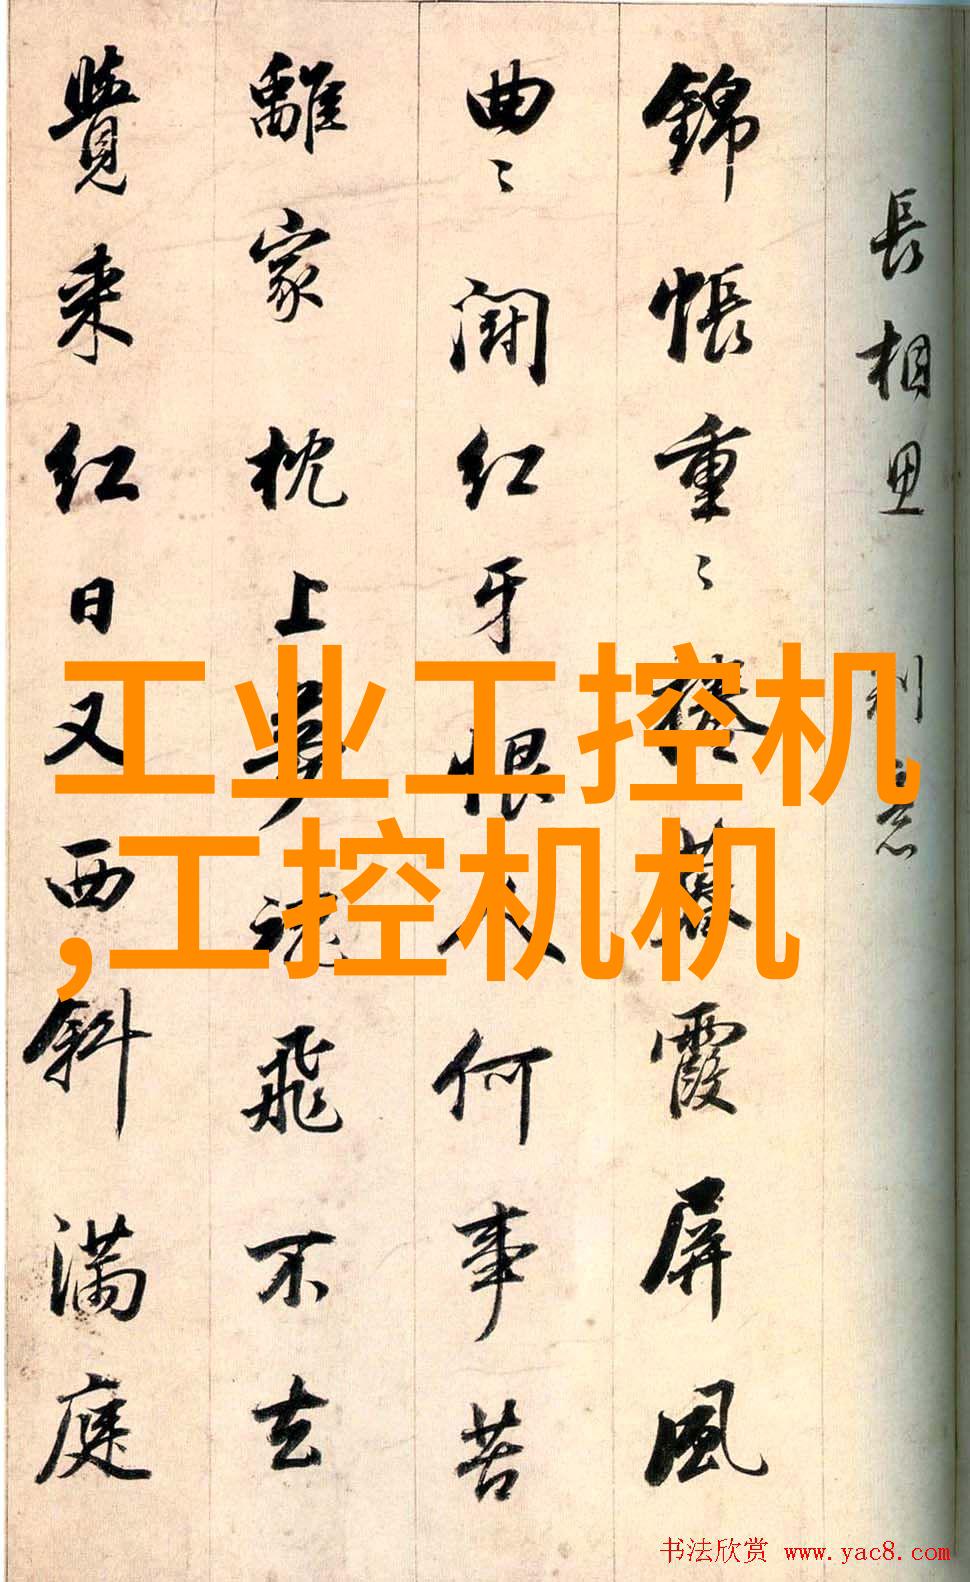 長相思 別意
錦帳重〻捲暮霞屏風
曲〻鬪紅牙恨人何事苦
離家枕上夢魂飛不去
覺來紅日又西斜滿庭
工业工控机
,工控机机
书法欣赏 www.yac8.com